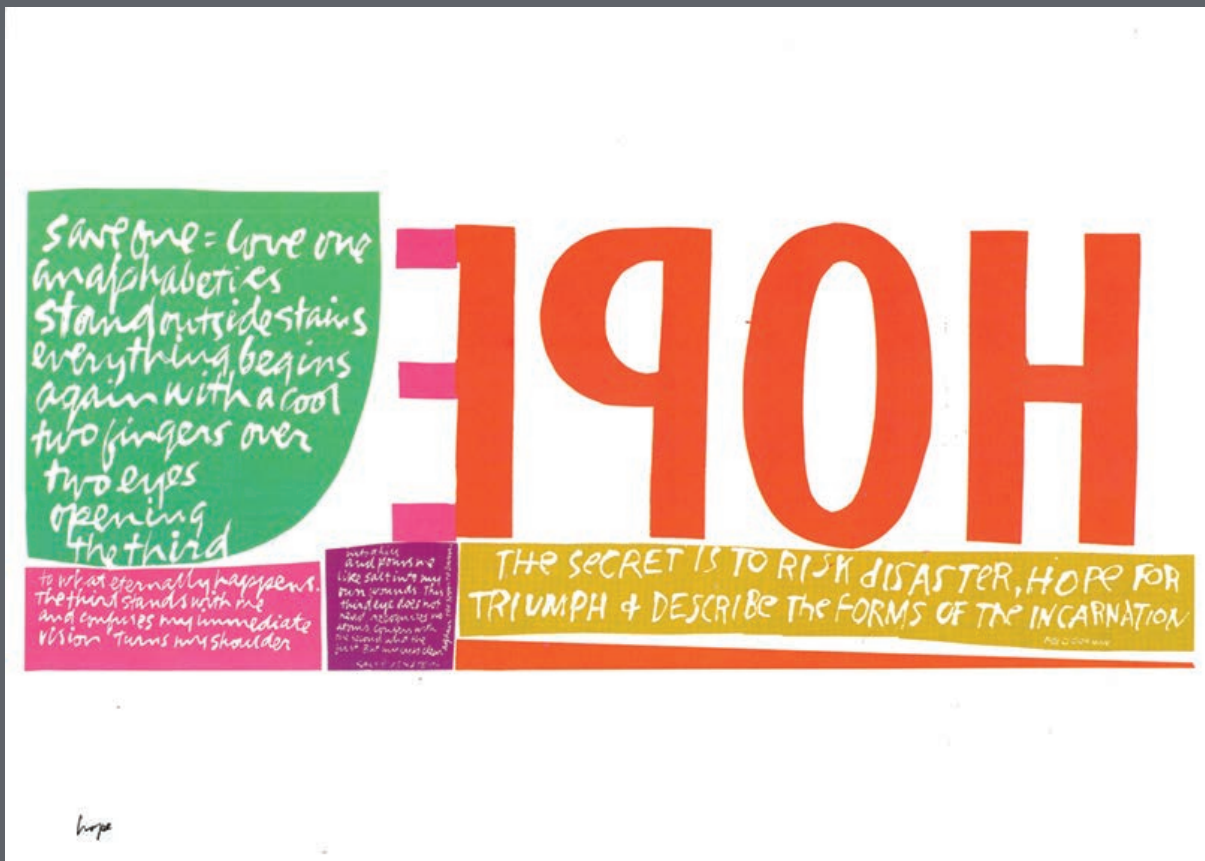 save one = love one
anaphabeties
stand outside stains
everything begins
again with a cool
two fingers over
two eyes
opening
the third
HOPE
to what eternally happens.
The third stands with me
and confuses my immediate
vision turns my shoulder
and pours me
like salt into my
own wounds This
third eye does not
need
THE SECRET IS TO RISK DISASTER, HOPE FOR
TRIUMPH & DESCRIBE THE FORMS OF THE INCARNATION
hope